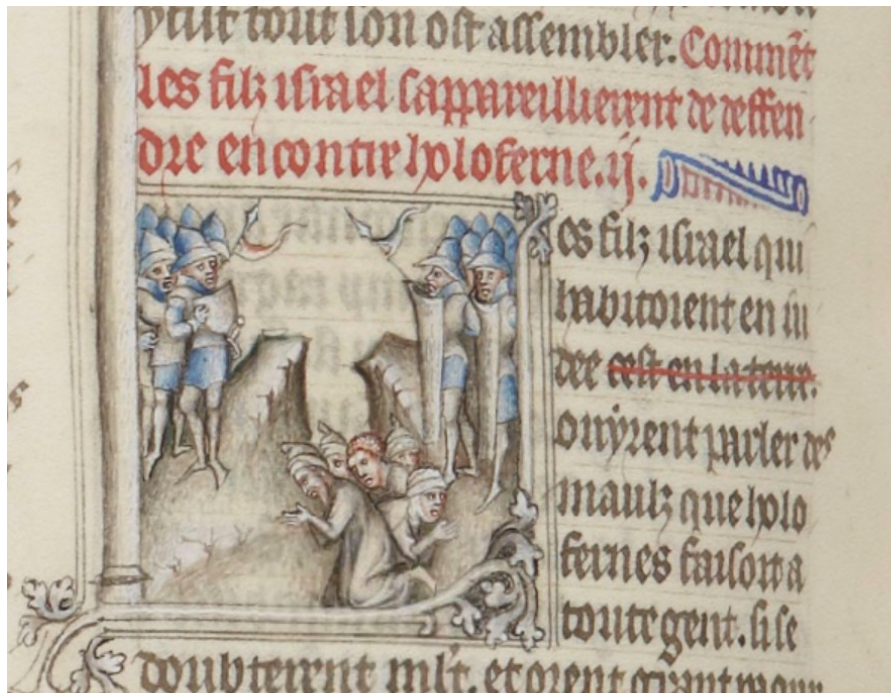 tout son ost assembler. Comme̅t
les filz israel sappareillierent de deffen
dre encontre holoferne.ij.
es filz israel qui
habitoient en iu
dee cest en la terre.
ouyrent parler des
maulz que holo
fernes faisoit a
toute gent. si se
doubterent ml't. et orent grant paour